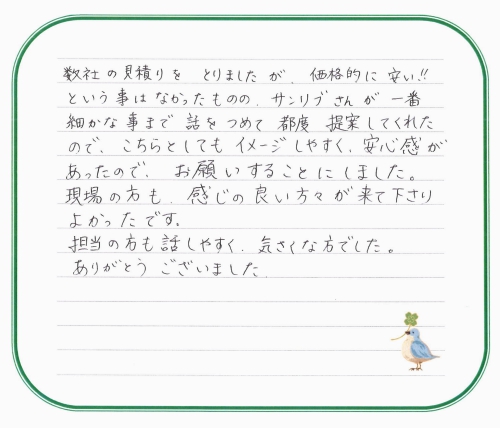 数社の見積りを とりましたが、価格的に 安い!!
という事は なかったものの、サンリブさんが 一番
細かな事まで 話をつめて 都度 提案してくれた
ので、こちらとしても イメージしやすく、安心感が
あったので、お願いすることにしました。
現場の方も、感じの良い方々が来て下さり
よかったです。
担当の方も話しやすく、気さくな方でした。
ありがとう ございました.